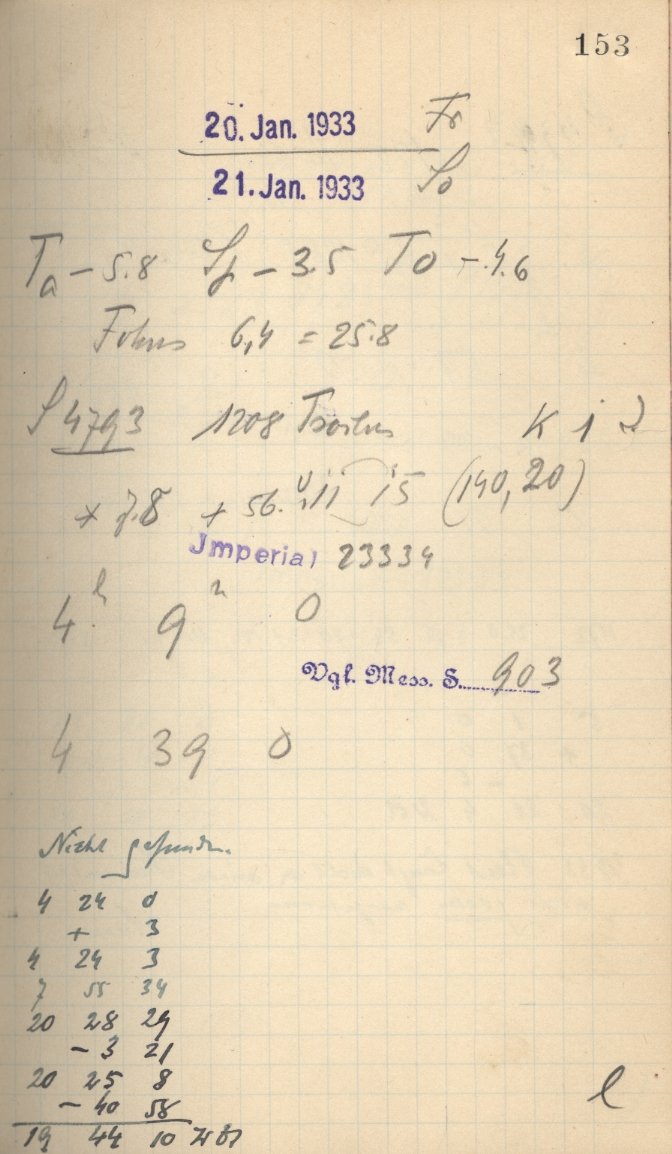 153
20. Jan. 1933 Fr
21. Jan. 1933 So
Ta - 5.8 Sp - 3.5 To - 4.6
Fokus 6,4 = 25.8
S 4793 1208 Troilus K
* 7.8 + 56. 11 15 (140,20)
Jmperial 23334
4h 9m 0
Vgl. Mess. S. 903
4 39 0
Nicht gefunden.
4 24 0
+ 3
4 24 3
7 55 34
20 28 29
- 3 21
20 25 8
- 40 58
19 44 10
l